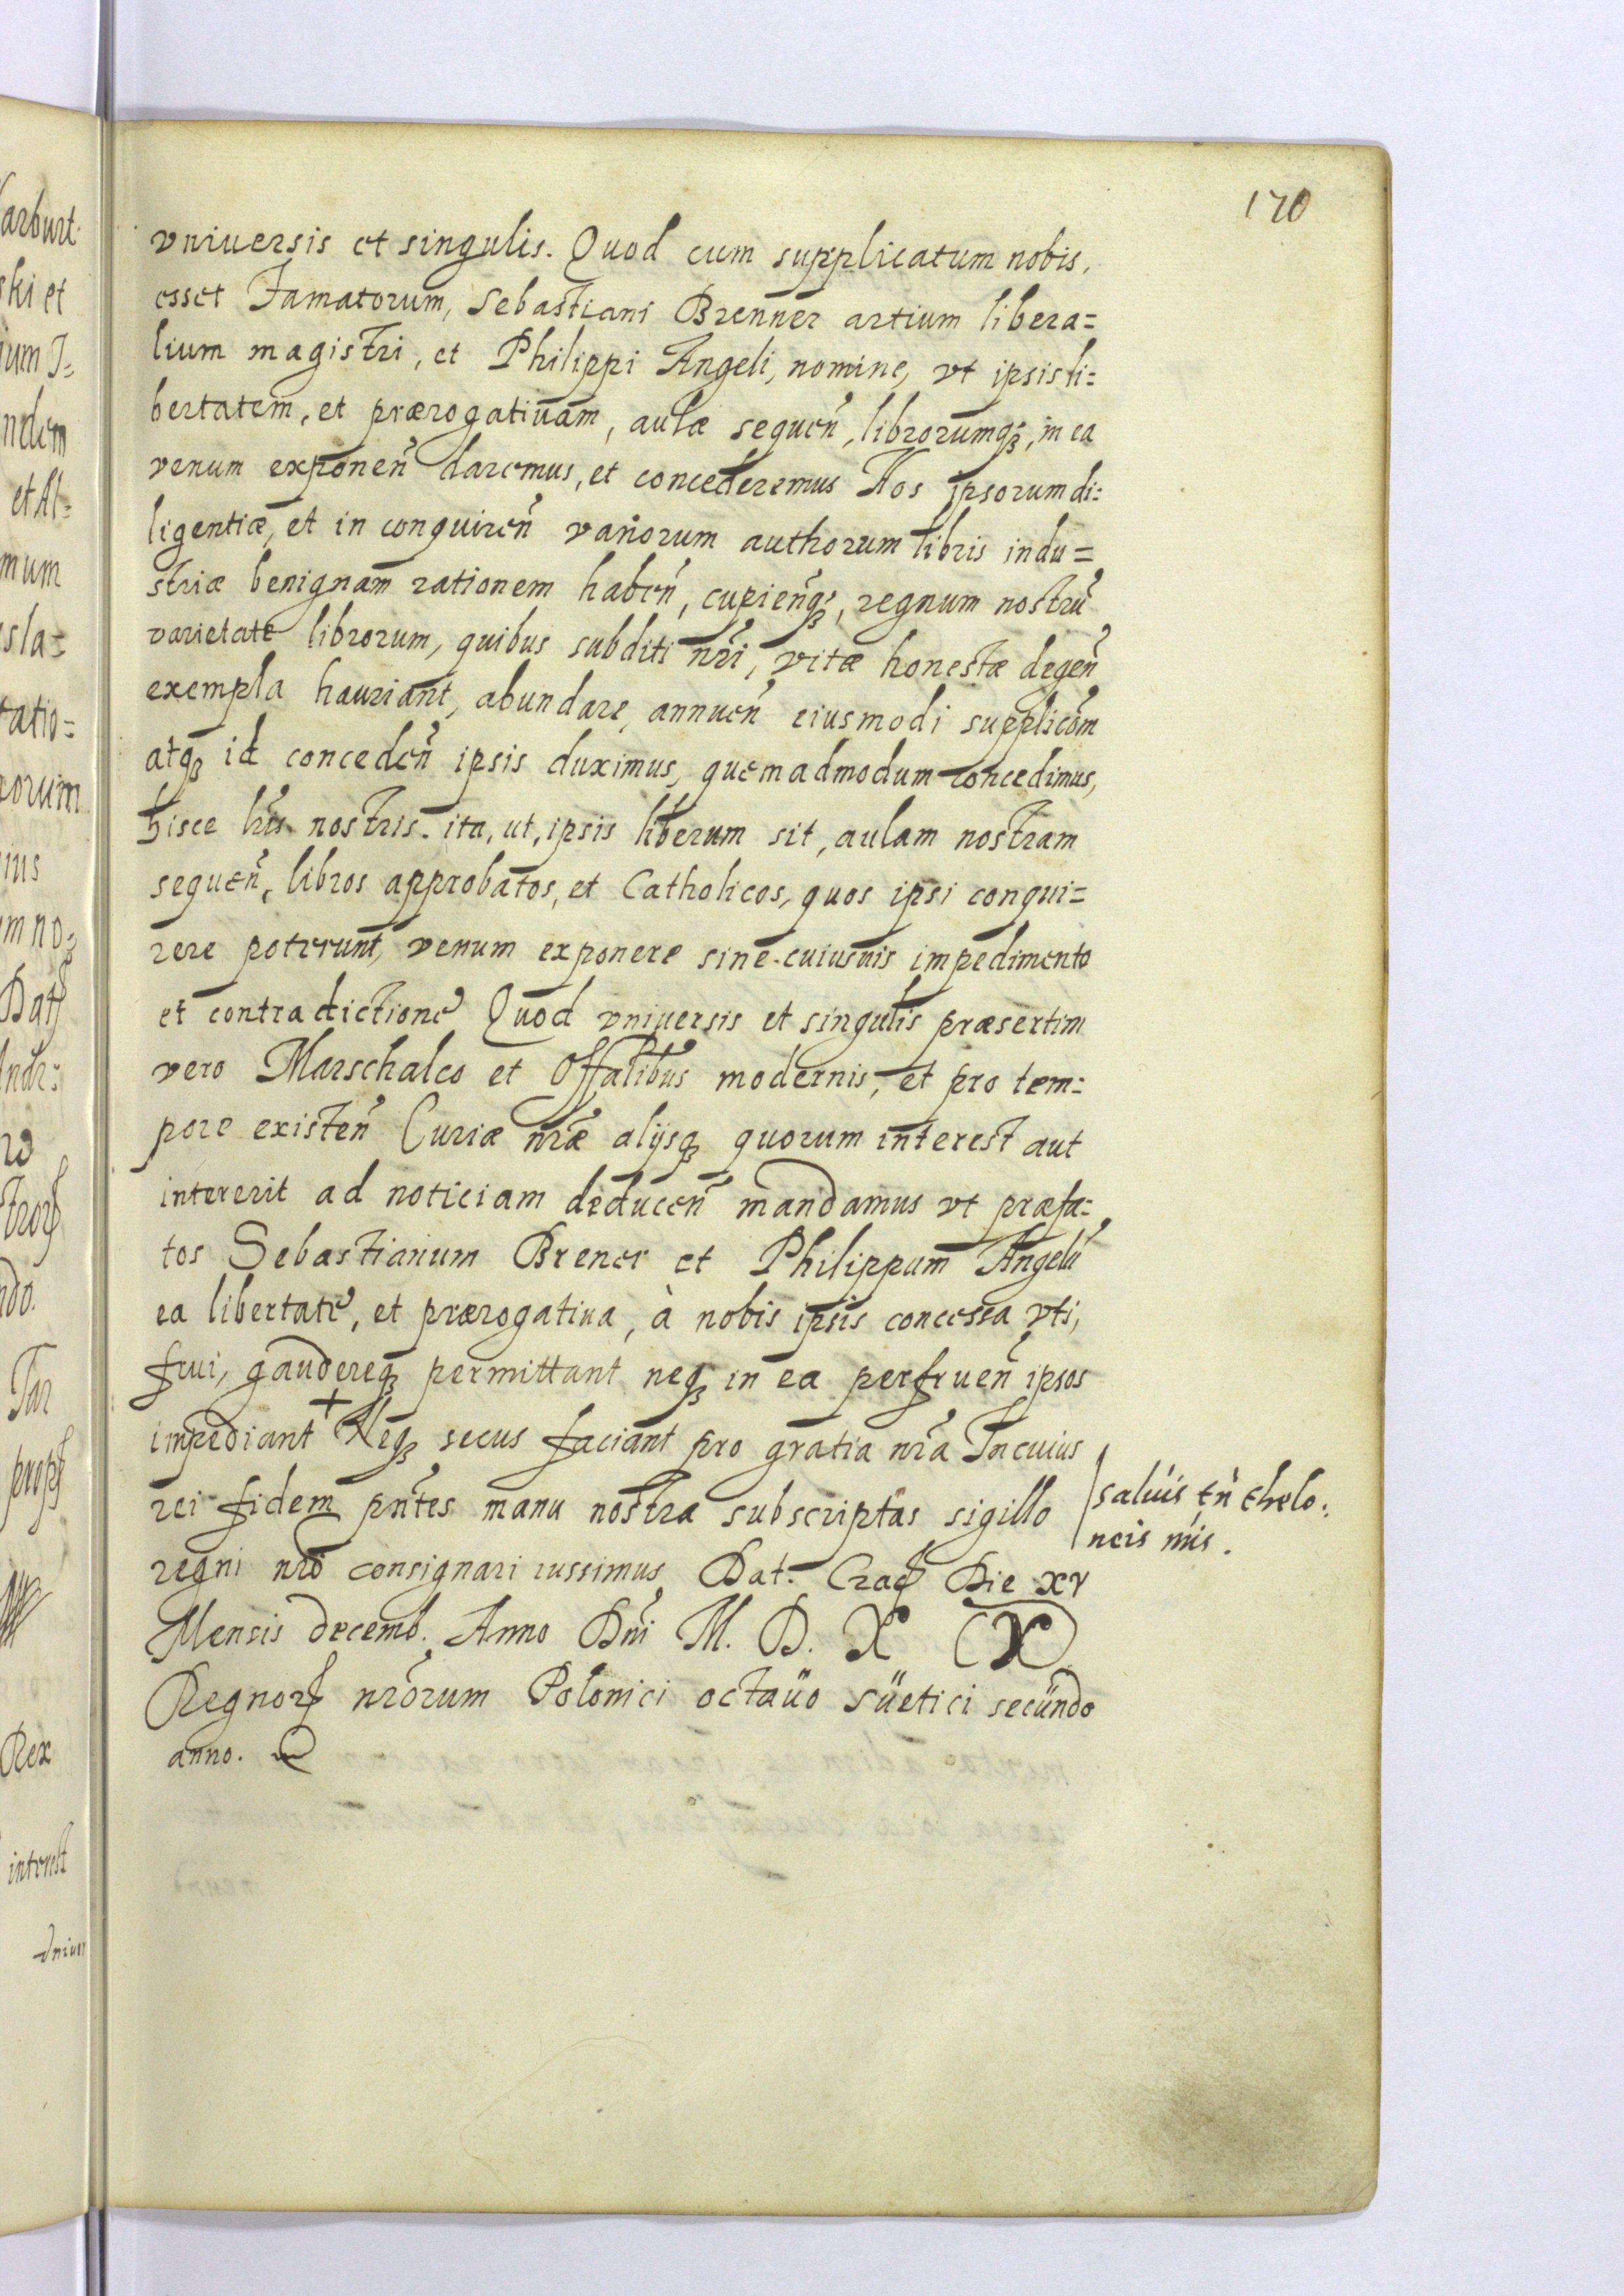 170
vniuersis et singulis. Quod cum supplicatum nobis,
esset Famatorum, Sebastiani Brenner artium libera=
lium magistri, et Philippi Angeli, nomine, vt ipsis li=
bertatem, et prærogatiuam, aulæ sequen̄, librorumqꝫ, in ea
venum exponen̄ daremus, et concederemus Nos ipsorum di=
ligentiæ, et in conquiren̄ variorum authorum libris indu=
striæ benignam rationem haben̄, cupien̄qꝫ, regnum nostrū
varietate librorum, quibus subditi nr̄i, vitæ honestæ degen̄
exempla hauriant, abundare, annuen̄ eiusmodi supplicōm
atqꝫ id conceden̄ ipsis duximus, quemadmodum concedimus,
hisce lr̄is nostris. ita, ut, ipsis liberum sit, aulam nostram
sequen̄, libros approbatos, et Catholicos, quos ipsi conqui=
rere poterunt, venum exponere sine cuiusuis impedimento
et contradictione Quod vniuersis et singulis præsertim
vero Marschalco et Offalibus modernis, et pro tem=
pore existen̄ Curiæ nr̄æ alijsqꝫ quorum interest aut
intererit ad noticiam deducen̄ mandamus vt præfa=
tos Sebastianum Brener et Philippum Angelū
ea libertate, et prærogatiua, à nobis ipsis concessa vti,
frui, gaudereqꝫ permittant neqꝫ in ea perfruen̄ ipsos
impediant + Neqꝫ secus faciant pro gratia nr̄a In cuius
rei fidem pn̄tes manu nostra subscriptas sigillo
saluis tn̄ thelo:
neis nr̄is.
regni nr̄o consignari iussimus Dat. Crac̄ Die XV
Mensis decemb. Anno Dn̄i M. D. X (X)
Regnorꝝ nr̄orum Polonici octauo suetici secundo
anno.